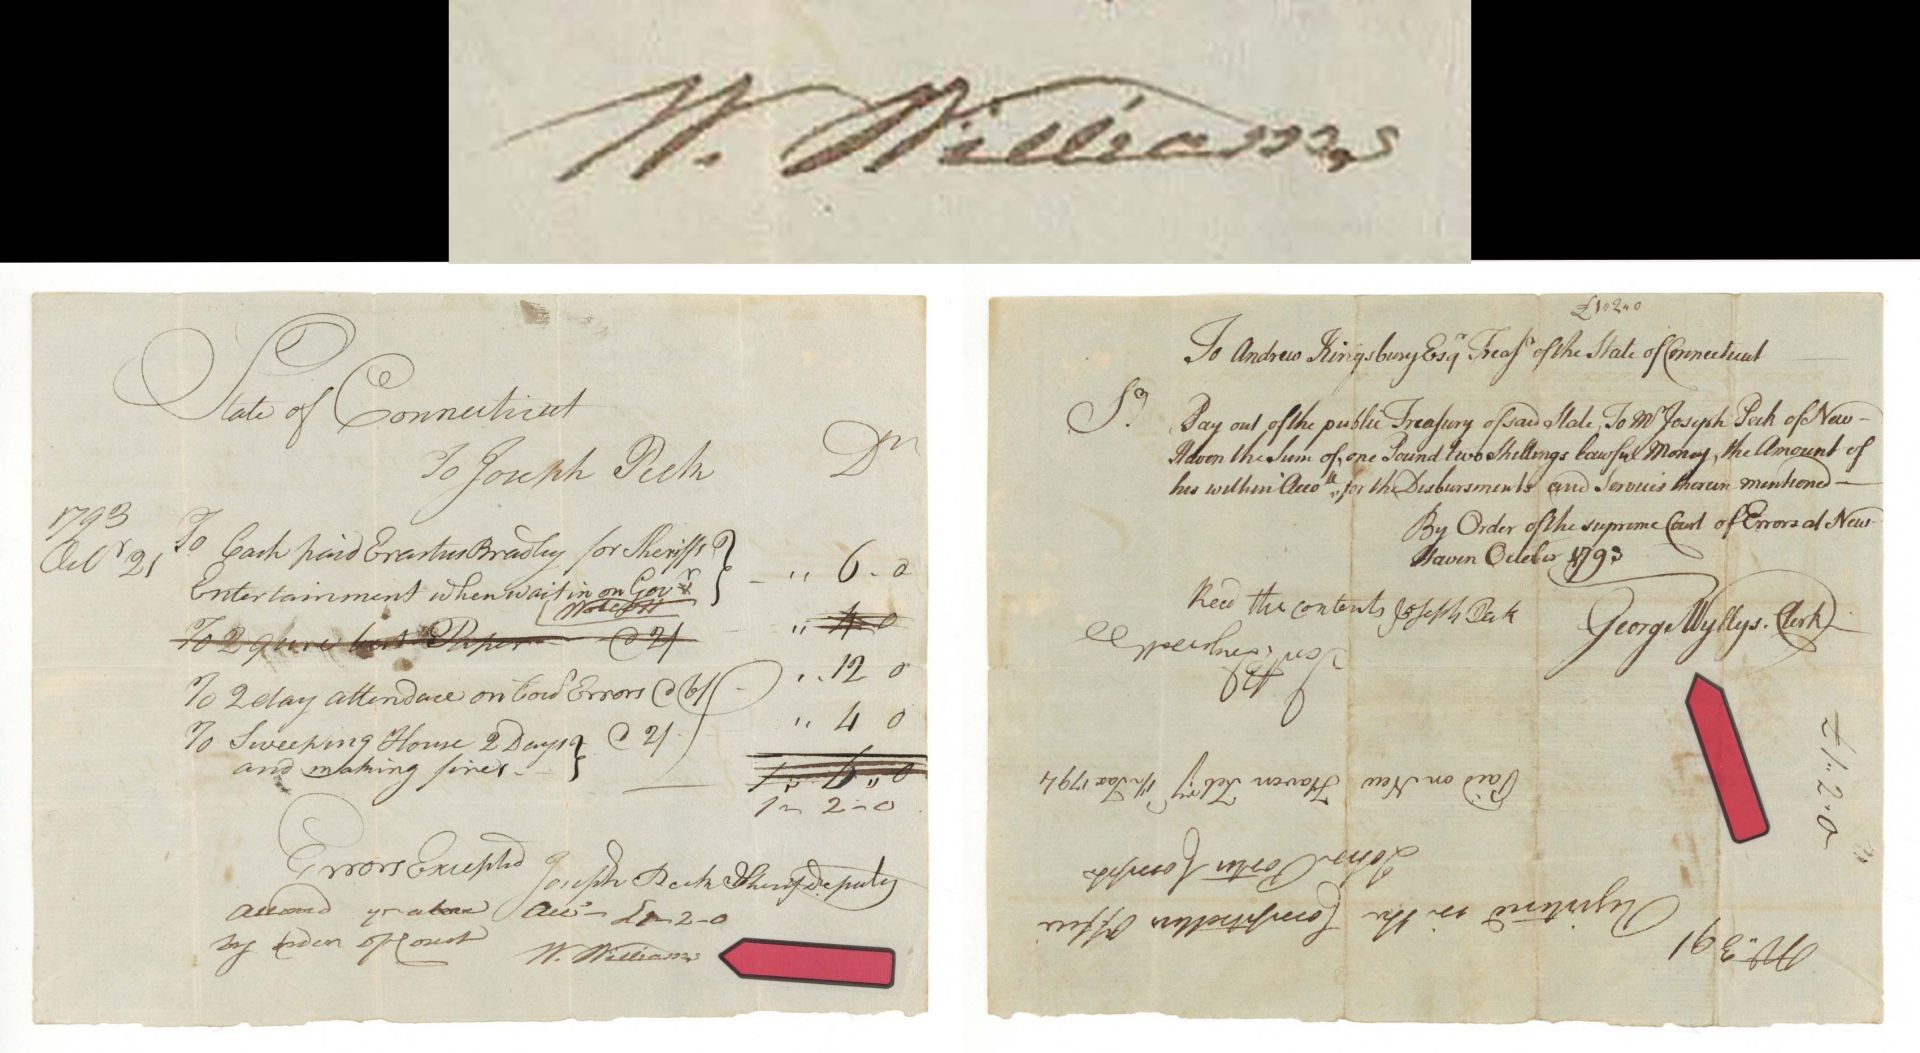 W. Williams
State of Connecticut
To Joseph Peck Dr
1793
Octr 21 To Cash paid Erastus Bradley for Sheriffs
Entertainment when waitin on Govr " 6 - 0
To 2 quire best Paper @ 2/ " 4 0
To 2 day attendace on Errors @ 6/ " 12 0
To Sweeping House 2 Days @ 2/ " 4 0
and making fires
1 " 6 " 0
1 - 2 - 0
Errors Excepted
Joseph Peck Sheriffs Deputy
ye above Acco £1-2-0
by order of Court
W. Williams
£1"2"0
To Andrew Kingsbury Esqr Treasr of the State of Connecticut
Sr
Pay out of the public Treasury of said State, To Mr Joseph Peck of New-
Haven the Sum of, one Pound two Shillings Lawful Money, the Amount of
his within Accott, for the Disbursments and Services therein mentioned
By Order of the supreme Court of Errors at New-
Haven October 1793
George Wyllys. Clerk
Recd the contents Joseph Peck
£1"2"0
Paid on New Haven Feby 1794
No. 391
Registered in the Comptrollers Office